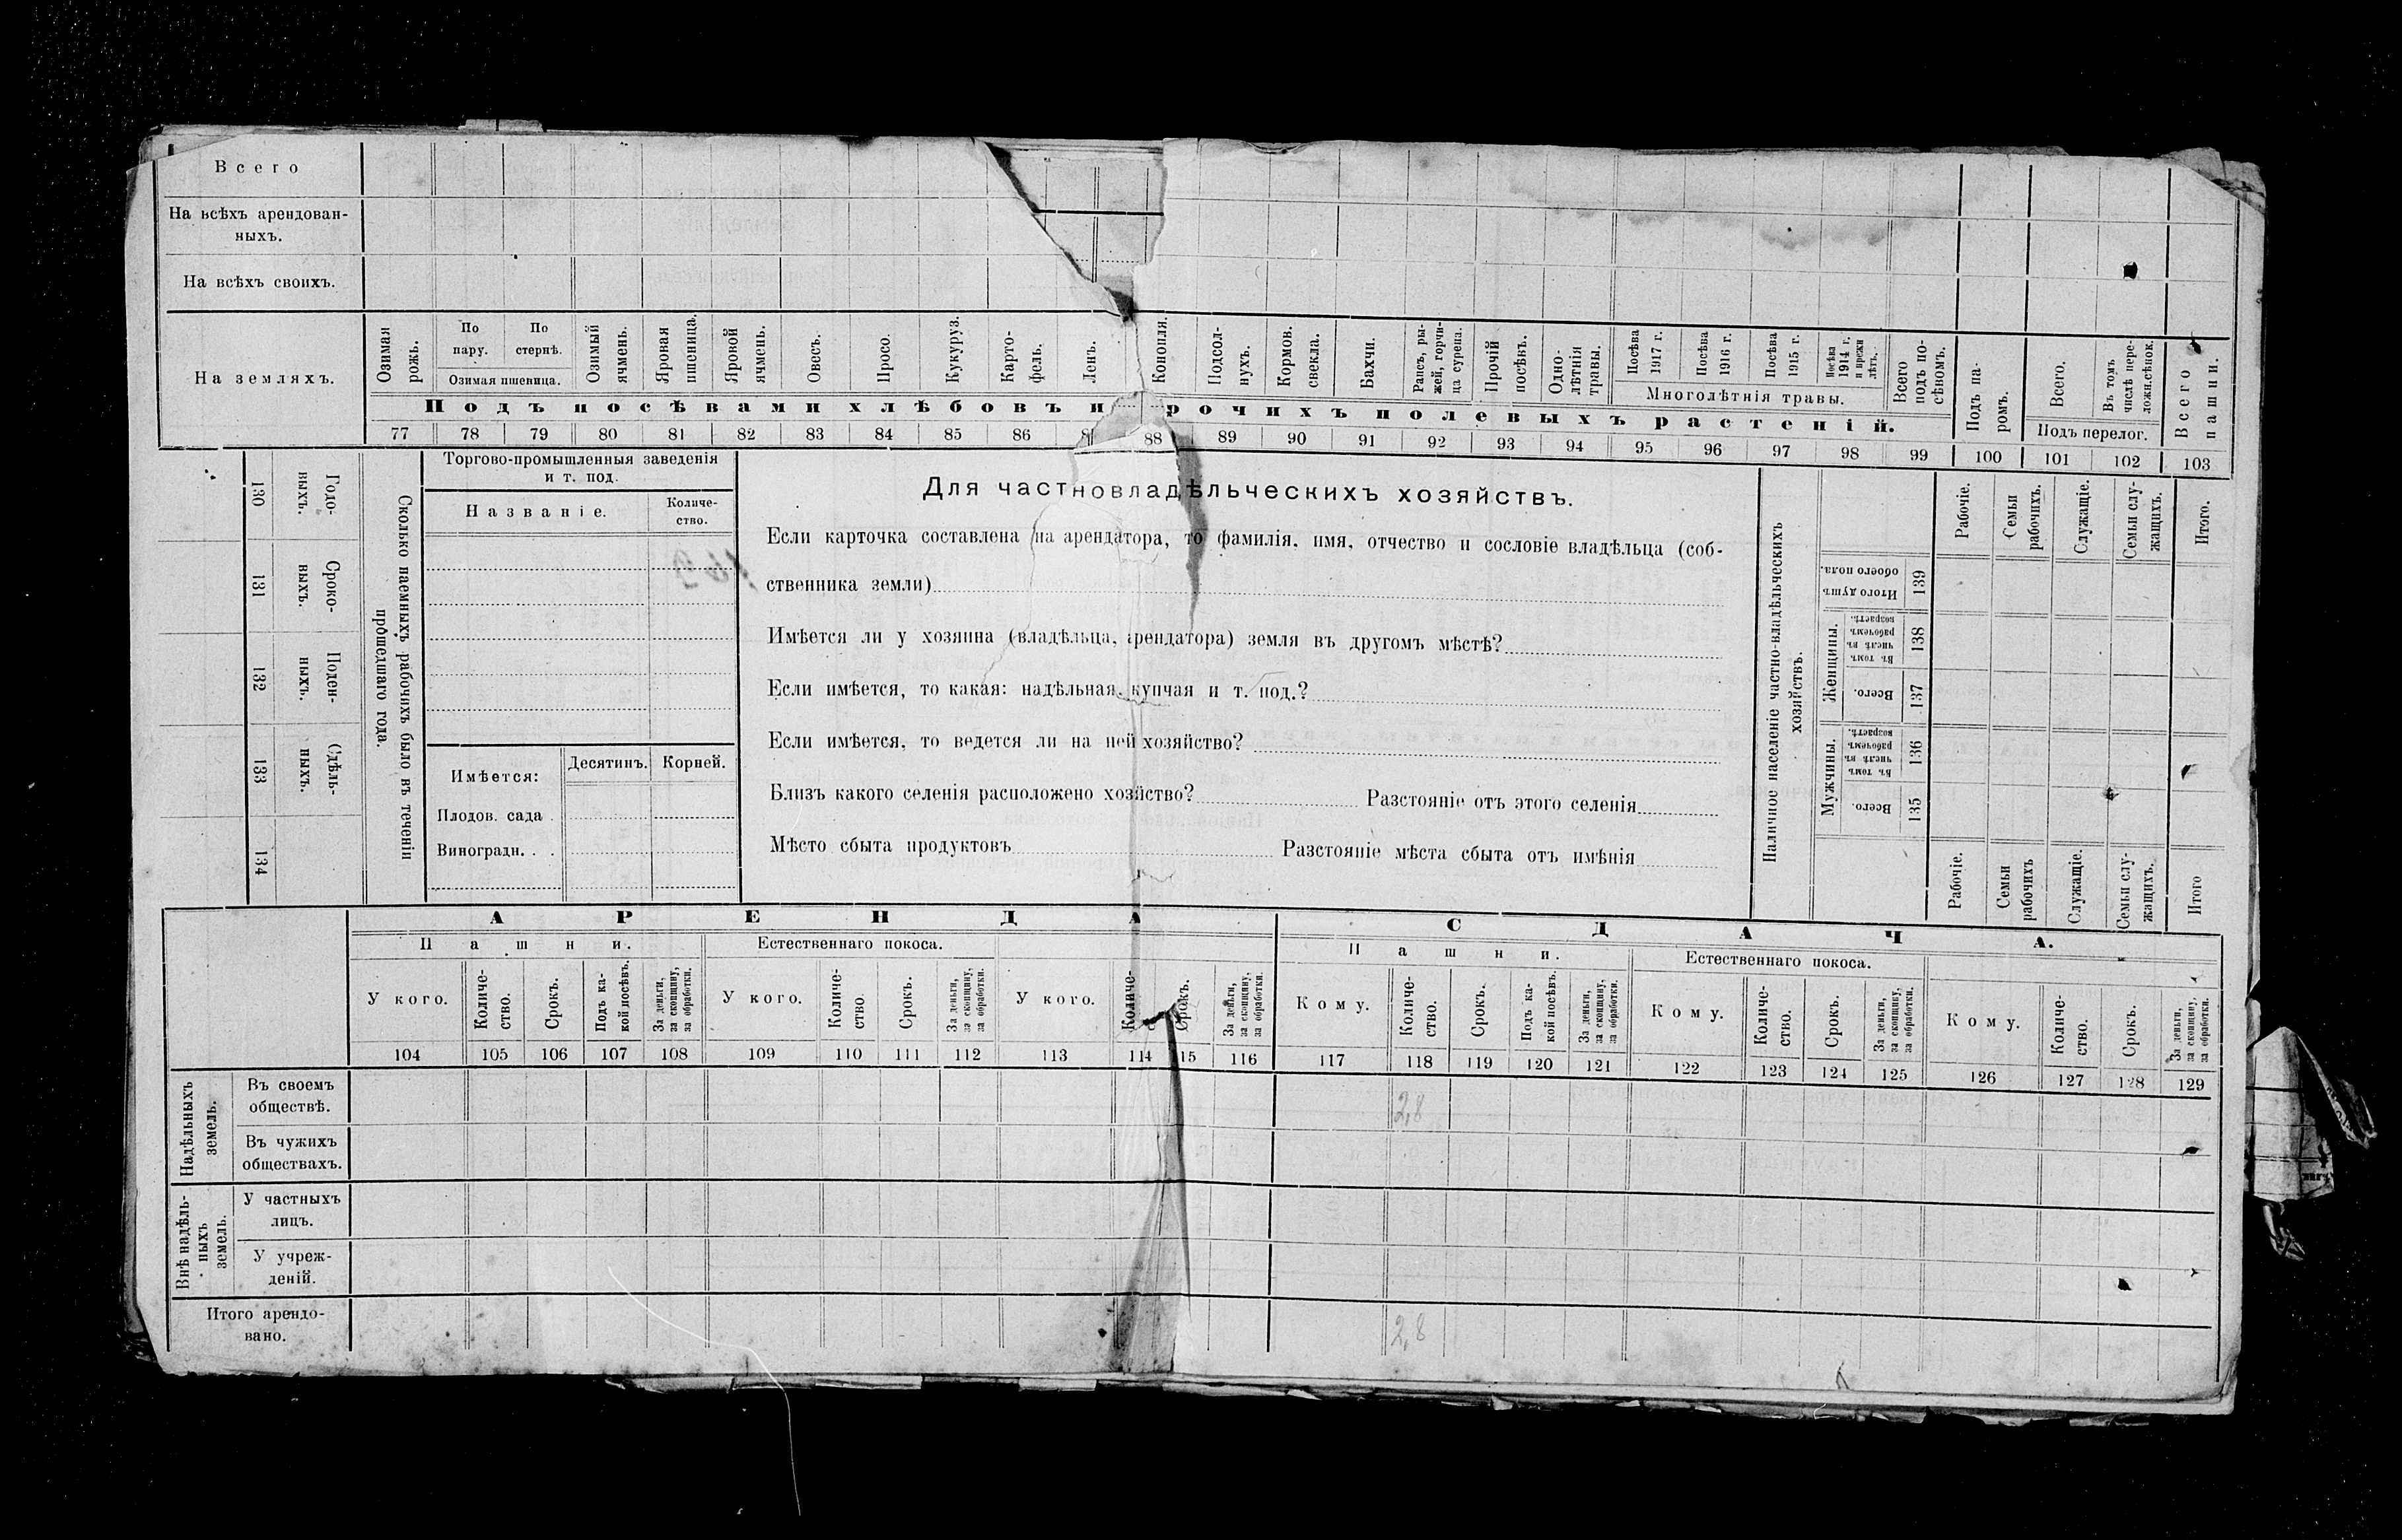 Всего
На всѣхъ арендован-
ныхъ.
На всѣхъ своихъ.
На земляхъ.
Озимая рожь.
По пару.
По стернѣ.
Озимая пшеница.
Озимый ячмень.
Яровая пшеница.
Яровой ячмень.
Овесъ.
Просо.
Кукуруз.
Карто-
фель.
Ленъ.
Конопля.
Подсол-
нухъ.
Кормов. свекла.
Бахчи.
Рапсъ, ры-
жей, горчи-
ца сурепа.
Прочій посѣвъ.
Одно-
лѣтнія травы.
Посѣва 1917 г.
Посѣва 1916 г.
Посѣва 1915 г.
Посѣва 1914 г. и прежн лѣтъ.
Многолѣтнія травы.
Всего подъ по-
сѣвомъ.
Подъ па-
ромъ.
Всего.
Въ томъ числѣ пере-
ложн.сѣнок.
Подъ перелог.
Всего пашни.
Подъ посѣвами хлѣбовъ и рочихъ полевыхъ растеній.
77 78 79 80 81 82 83 84 85 86 8 88 89 90 91 92 93 94 95 96 97 98 99 100 101 102 103
Сколько наемныхъ рабочихъ было въ теченіи
прошедшаго года.
Годо-
ныхъ.
130
Сроко-
ныхъ.
131
Поден-
ныхъ.
132
Сдѣль-
ныхъ.
133
134
Торгово-промышленныя заведенія
и т. под.
Названіе.
Количе-
ство.
Имѣется:
Десятинъ.
Корней.
Плодов. сада .
Виноградн. . .
Для частновладѣльческихъ хозяйствъ.
Если карточка составлена на арендатора, то фамилія, имя, отчество и сословіе владѣльца (соб-
ственника земли)
Имѣется ли у хозяина (владѣльца, арендатора) земля въ другомъ мѣстѣ?
Если имѣется, то какая: надѣльная, купчая и т. под.?
Если имѣется, то ведется ли на ней хозяйство?
Близъ какого селенія расположено хозяйство? Разстояніе отъ этого селенія
Мѣсто сбыта продуктовъ Разстояніе мѣста сбыта отъ имѣнія
Наличное населеніе частно-владѣльческихъ
хозяйствъ.
Рабочіе.
Семьи рабочихъ.
Служащіе.
Семьи слу-
жащихъ.
Итого.
Итого душъ обоего пола.
139
Женщины.
Въ томъ числѣ въ рабочемъ возрастѣ.
138
Всего.
137
Мужчины.
Въ томъ числѣ въ рабочемъ возрастѣ.
136
Всего.
135
Рабочіе.
Семьи рабочихъ
Служащіе.
Семьи слу-
жащихъ.
Итого
АРЕНДА
Пашни.
Естественнаго покоса.
У кого.
Количе-
ство.
Срокъ.
Подъ ка-
кой посѣвъ.
За деньги,
за скопщину,
за обработки.
У кого.
Количе-
ство
Срокъ.
За деньги,
за скопщину,
за обработки.
У кого.
Количе-
Срокъ.
За деньги,
за скопщину,
за обработки.
104 105 106 107 108 109 110 111 112 113 114 15 116
СДАЧА.
Пашни.
Естественнаго покоса.
Кому.
Количе-
ство.
Срокъ.
Подъ ка-
кой посѣвъ.
За деньги,
за скопщину,
за обработки.
Кому.
Количе-
ство.
Срокъ.
За деньги,
за скопщину,
за обработки.
Кому.
Количе-
ство.
Срокъ.
За деньги,
за скопщину,
за обработки.
117 118 119 120 121 122 123 124 125 126 127 128 129
Надѣльныхъ
земель.
Въ своемъ
обществѣ.
2,8
Въ чужихъ
обществахъ.
Внѣ надѣль-
ныхъ
земель.
У частныхъ
лицъ.
У учреж-
деній.
Итого арендо-
вано.
2,8